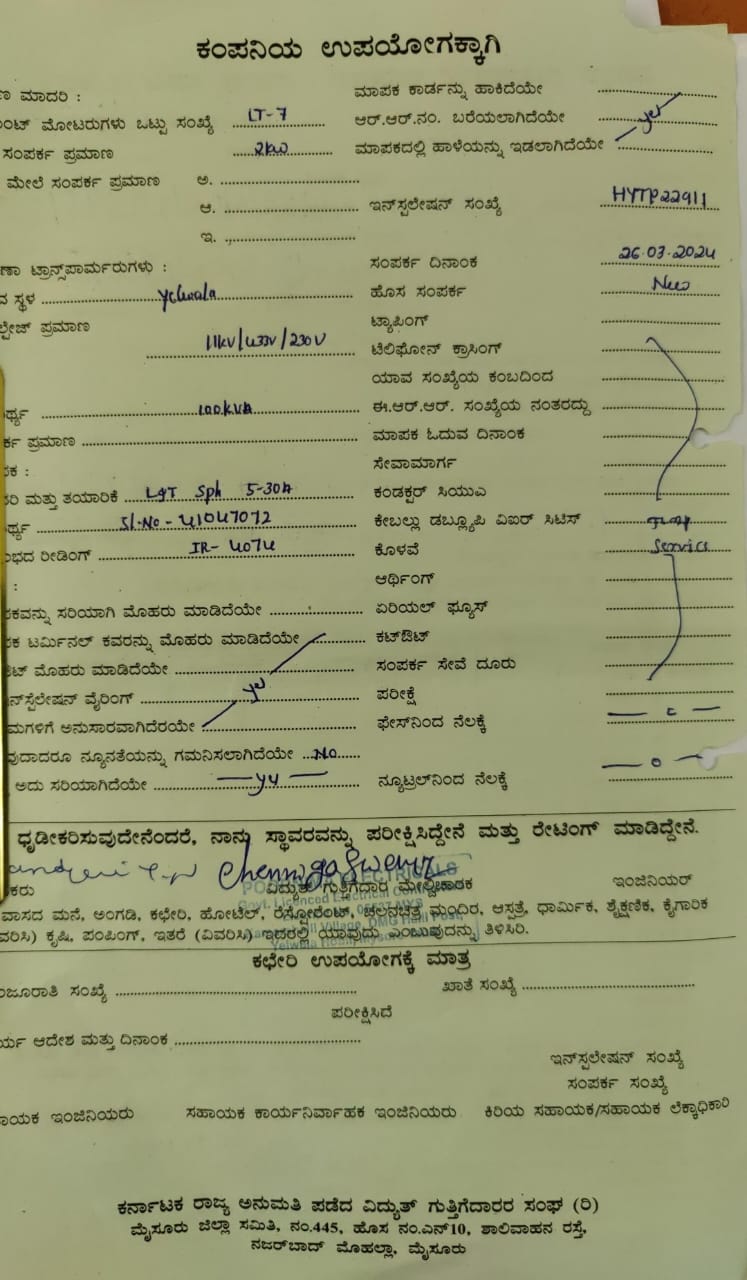 ಕಂಪನಿಯ ಉಪಯೋಗಕ್ಕಾಗಿ
ಣ ಮಾದರಿ :
ಮಾಪಕ ಕಾರ್ಡನ್ನು ಹಾಕಿದೆಯೇ
ಂಟ್ ಮೋಟರುಗಳು ಒಟ್ಟು ಸಂಖ್ಯೆ LT-7
ಆರ್.ಆರ್.ನಂ. ಬರೆಯಲಾಗಿದೆಯೇ
ಸಂಪರ್ಕ ಪ್ರಮಾಣ 2kw
ಮಾಪಕದಲ್ಲಿ ಹಾಳೆಯನ್ನು ಇಡಲಾಗಿದೆಯೇ yes
ಮೇಲೆ ಸಂಪರ್ಕ ಪ್ರಮಾಣ ಅ.
ಆ.
ಇನ್‌ಸ್ಪಲೇಷನ್ ಸಂಖ್ಯೆ HYTP22911
ಇ.
ಣಾ ಟ್ರಾನ್ಸ್‌ಪಾರ್ಮರುಗಳು :
ಸಂಪರ್ಕ ದಿನಾಂಕ 26.03.2024
ವ ಸ್ಥಳ Yelwala
ಹೊಸ ಸಂಪರ್ಕ New
ಲ್ಟೇಜ್ ಪ್ರಮಾಣ 11kV/433V/230V
ಟ್ಯಾಪಿಂಗ್
ಟೆಲಿಫೋನ್ ಕ್ರಾಸಿಂಗ್
ಯಾವ ಸಂಖ್ಯೆಯ ಕಂಬದಿಂದ
ರ್ಥ್ಯ 100kVA
ಈ.ಆರ್.ಆರ್. ಸಂಖ್ಯೆಯ ನಂತರದ್ದು
ರ್ಕ ಪ್ರಮಾಣ
ಮಾಪಕ ಓದುವ ದಿನಾಂಕ
ಕ :
ಸೇವಾಮಾರ್ಗ
ರಿ ಮತ್ತು ತಯಾರಿಕೆ L&T Sph 5-30A
ಕಂಡಕ್ಟರ್ ಸಿಯುಎ
ರ್ಥ್ಯ Sl.No - 41047072
ಕೇಬಲ್ಲು ಡಬ್ಲ್ಯೂಪಿ ವಿಐರ್ ಸಿಟಿಸ್
ಂಭದ ರೀಡಿಂಗ್ IR- 4074
ಕೊಳವೆ Service
:
ಆರ್ಥಿಂಗ್
ಕವನ್ನು ಸರಿಯಾಗಿ ಮೊಹರು ಮಾಡಿದೆಯೇ
ಏರಿಯಲ್ ಫ್ಯೂಸ್
ಕ ಟರ್ಮಿನಲ್ ಕವರನ್ನು ಮೊಹರು ಮಾಡಿದೆಯೇ
ಕಟ್‌ಔಟ್
ಟ್ ಮೊಹರು ಮಾಡಿದೆಯೇ
ಸಂಪರ್ಕ ಸೇವೆ ದೂರು
ನ್‌ಸ್ಪೆಲೇಷನ್ ವೈರಿಂಗ್ yes
ಪರೀಕ್ಷೆ
ಮಗಳಿಗೆ ಅನುಸಾರವಾಗಿದೆರಯೇ
ಫೇಸ್‌ನಿಂದ ನೆಲಕ್ಕೆ
ವುದಾದರೂ ನ್ಯೂನತೆಯನ್ನು ಗಮನಿಸಲಾಗಿದೆಯೇ No
ಅದು ಸರಿಯಾಗಿದೆಯೇ yes
ನ್ಯೂಟ್ರಲ್‌ನಿಂದ ನೆಲಕ್ಕೆ — 0 —
ಧೃಡೀಕರಿಸುವುದೇನೆಂದರೆ, ನಾನು ಸ್ಥಾವರವನ್ನು ಪರೀಕ್ಷಿಸಿದ್ದೇನೆ ಮತ್ತು ರೇಟಿಂಗ್ ಮಾಡಿದ್ದೇನೆ.
ಕರು ವಿದ್ಯುತ್ ಗುತ್ತಿಗೆದಾರ ಮೇಲ್ವಿಚಾರಕ ಇಂಜಿನಿಯರ್
ವಾಸದ ಮನೆ, ಅಂಗಡಿ, ಕಛೇರಿ, ಹೋಟೆಲ್, ರೆಸ್ಟೋರೆಂಟ್, ಚಲನಚಿತ್ರ ಮಂದಿರ, ಆಸ್ಪತ್ರೆ, ಧಾರ್ಮಿಕ, ಶೈಕ್ಷಣಿಕ, ಕೈಗಾರಿಕ
ವರಿಸಿ) ಕೃಷಿ, ಪಂಪಿಂಗ್, ಇತರೆ (ವಿವರಿಸಿ) ಇದರಲ್ಲಿ ಯಾವುದು ಎಂಬುವುದನ್ನು ತಿಳಿಸಿರಿ.
ಕಛೇರಿ ಉಪಯೋಗಕ್ಕೆ ಮಾತ್ರ
ಂಜೂರಾತಿ ಸಂಖ್ಯೆ
ಖಾತೆ ಸಂಖ್ಯೆ
ಪರೀಕ್ಷಿಸಿದೆ
ರ್ಯ ಆದೇಶ ಮತ್ತು ದಿನಾಂಕ
ಇನ್‌ಸ್ಪಲೇಷನ್ ಸಂಖ್ಯೆ
ಸಂಪರ್ಕ ಸಂಖ್ಯೆ
ಾಯಕ ಇಂಜಿನಿಯರು ಸಹಾಯಕ ಕಾರ್ಯನಿರ್ವಾಹಕ ಇಂಜಿನಿಯರು ಕಿರಿಯ ಸಹಾಯಕ/ಸಹಾಯಕ ಲೆಕ್ಕಾಧಿಕಾರಿ
ಕರ್ನಾಟಕ ರಾಜ್ಯ ಅನುಮತಿ ಪಡೆದ ವಿದ್ಯುತ್ ಗುತ್ತಿಗೆದಾರರ ಸಂಘ (ರಿ)
ಮೈಸೂರು ಜಿಲ್ಲಾ ಸಮಿತಿ, ನಂ.445, ಹೊಸ ನಂ.ಎನ್10, ಶಾಲಿವಾಹನ ರಸ್ತೆ,
ನಜರ್‌ಬಾದ್ ಮೊಹಲ್ಲಾ, ಮೈಸೂರು